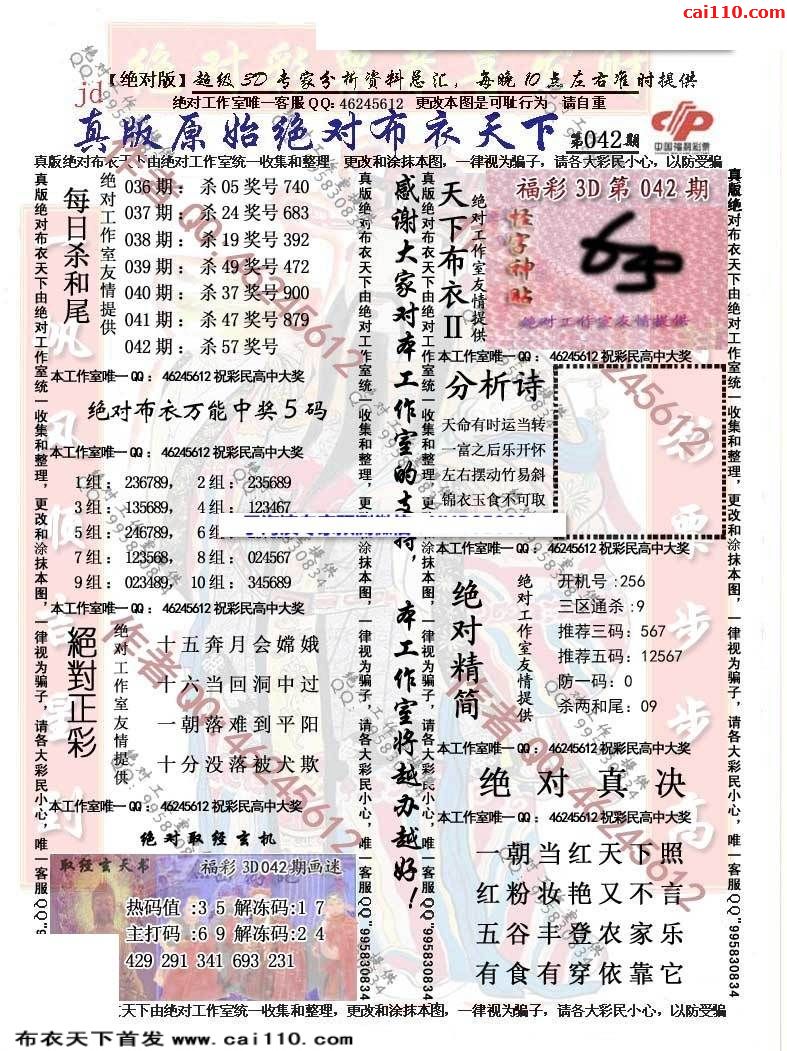 cai110.com
【绝对版】超级3D专家分析资料总汇，每晚10点左右准时提供
绝对工作室唯一客服QQ：46245612 更改本图是可耻行为 请自重
jd
真版原始绝对布衣天下 第042期
中国福利彩票
真版绝对布衣天下由绝对工作室统一收集和整理，更改和涂抹本图，一律视为骗子，请各大彩民小心，以防受骗
每日杀和尾
绝对工作室友情提供
036期：杀05奖号740
037期：杀24奖号683
038期：杀19奖号392
039期：杀49奖号472
040期：杀37奖号900
041期：杀47奖号879
042期：杀57奖号
本工作室唯一QQ：46245612祝彩民高中大奖
绝对布衣万能中奖5码
本工作室唯一QQ：46245612祝彩民高中大奖
1组：236789， 2组：235689
3组：135689， 4组：123467
5组：246789， 6组
7组：123568， 8组：024567
9组：023489， 10组：345689
本工作室唯一QQ：46245612祝彩民高中大奖
絕對正彩
绝对工作室友情提供
十五奔月会嫦娥
十六当回洞中过
一朝落难到平阳
十分没落被犬欺
本工作室唯一QQ：46245612祝彩民高中大奖
绝对取经玄机
取经玄天书 福彩3D042期画迷
热码值：35解冻码：17
主打码：69解冻码：24
429 291 341 693 231
真版绝对布衣天下由绝对工作室统一收集和整理，更改和涂抹本图，一律视为骗子，请各大彩民小心，唯一客服QQ"995830834
感谢大家对本工作室的支持，本工作室将越办越好！
天下布衣II
绝对工作室友情提供
福彩3D第042期
怪字神贴
绝对工作室友情提供
本工作室唯一QQ：46245612祝彩民高中大奖
分析诗
天命有时运当转
一富之后乐开怀
左右摆动竹易斜
锦衣玉食不可取
本工作室唯一QQ：46245612祝彩民高中大奖
绝对精简
绝对工作室友情提供
开机号:256
三区通杀:9
推荐三码:567
推荐五码:12567
防一码:0
杀两和尾:09
本工作室唯一QQ：46245612祝彩民高中大奖
绝对真决
本工作室唯一QQ：46245612祝彩民高中大奖
一朝当红天下照
红粉妆艳又不言
五谷丰登农家乐
有食有穿依靠它
真版绝对布衣天下由绝对工作室统一收集和整理，更改和涂抹本图，一律视为骗子，请各大彩民小心，唯一客服QQ"995830834
天下由绝对工作室统一收集和整理，更改和涂抹本图，一律视为骗子，请各大彩民小心，以防受骗
布衣天下首发 www.cai110.com